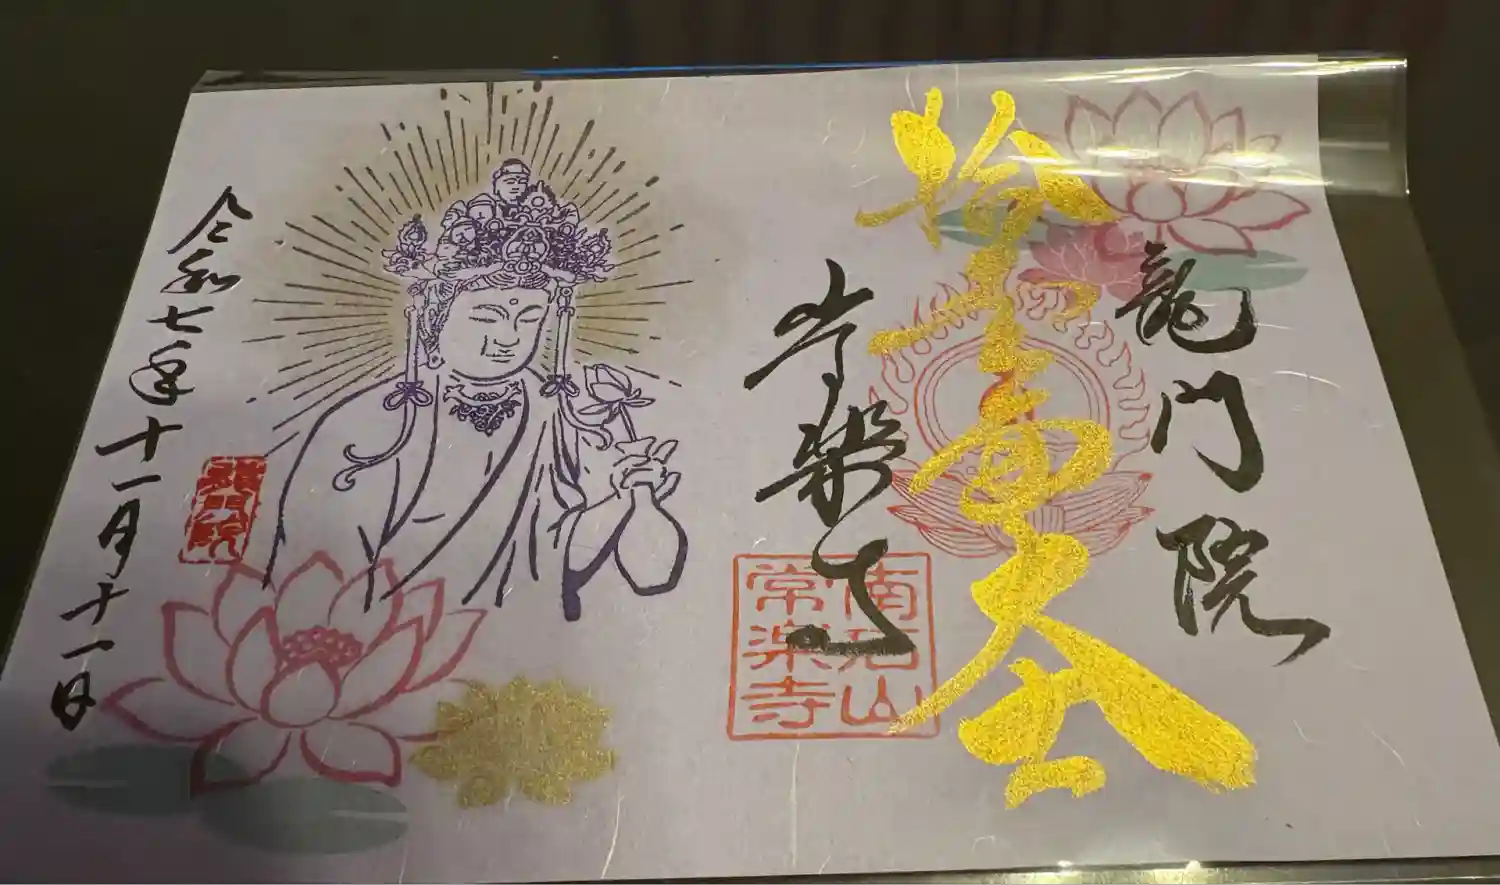 龍門院
拾壱面大士
常楽寺
南石山
常楽寺
龍門院
令和七年十一月十一日